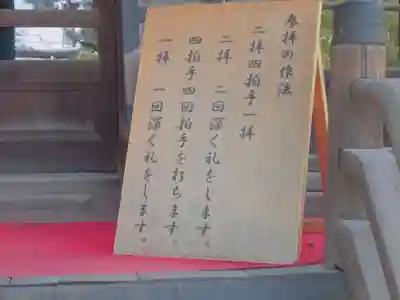 参拝の作法
二拝四拍手一拝
二拝 二回深く礼をします。
四拍手 四回拍手を打ちます。
一拝 一回深く礼をします。